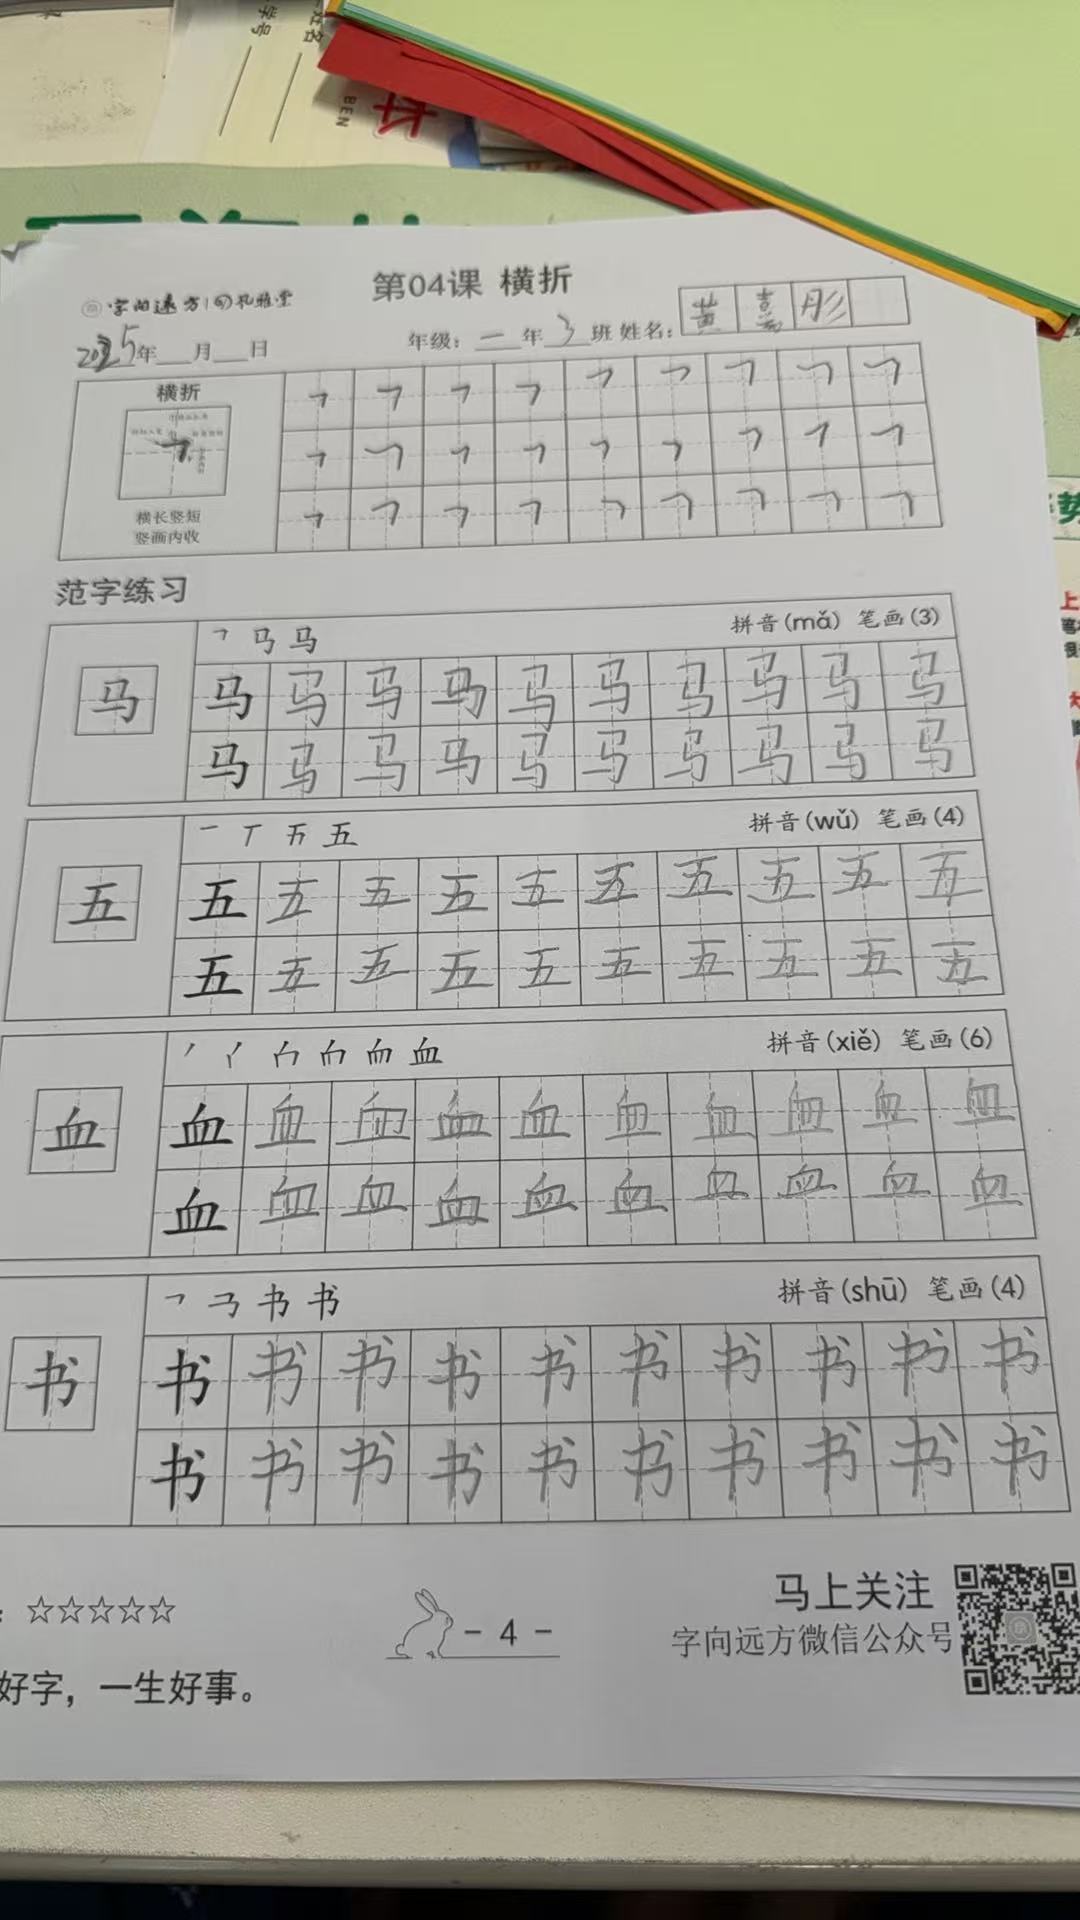 姓名
学号
本
BEN
第04课 横折
字向远方
2025年 月 日
年级: 一 年 3 班 姓名: 黄 嘉 彤
横折
横长竖短
竖画内收
范字练习
㇕ 马 马
拼音(mǎ) 笔画(3)
马 马 马 马 马 马 马 马 马 马 马
马 马 马 马 马 马 马 马 马 马
一 丁 五 五
拼音(wǔ) 笔画(4)
五 五 五 五 五 五 五 五 五 五 五
五 五 五 五 五 五 五 五 五 五
拼音(xiě) 笔画(6)
血 血 血 血 血 血 血 血 血 血 血
血 血 血 血 血 血 血 血 血 血
书 书
拼音(shū) 笔画(4)
书 书 书 书 书 书 书 书 书 书 书
书 书 书 书 书 书 书 书 书 书
: ☆☆☆☆☆
- 4 -
马上关注
字向远方微信公众号
好字，一生好事。